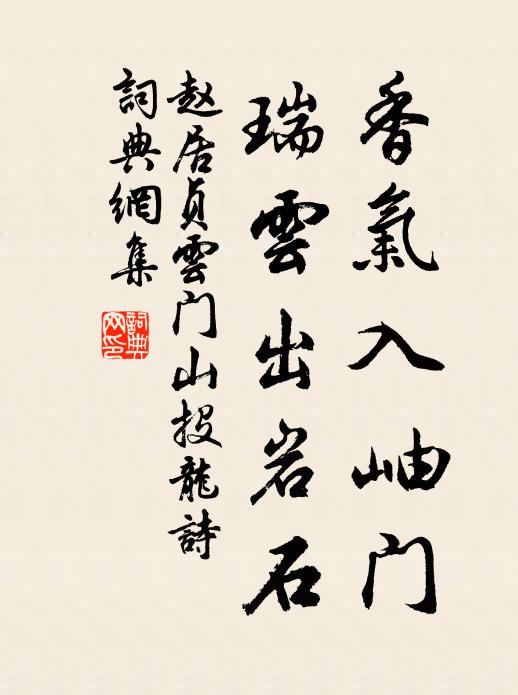 香氣入岫门
瑞雲出岩石
赵居贞雲门山投龍詩
詞典網集
詞典网印